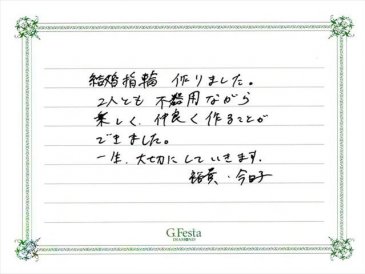 結婚指輪 作りました。
2人とも 不器用ながら
楽しく、仲良く作ることが
できました。
一生、大切にしていきます。
裕貴・今日子
G.Festa
DIAMOND